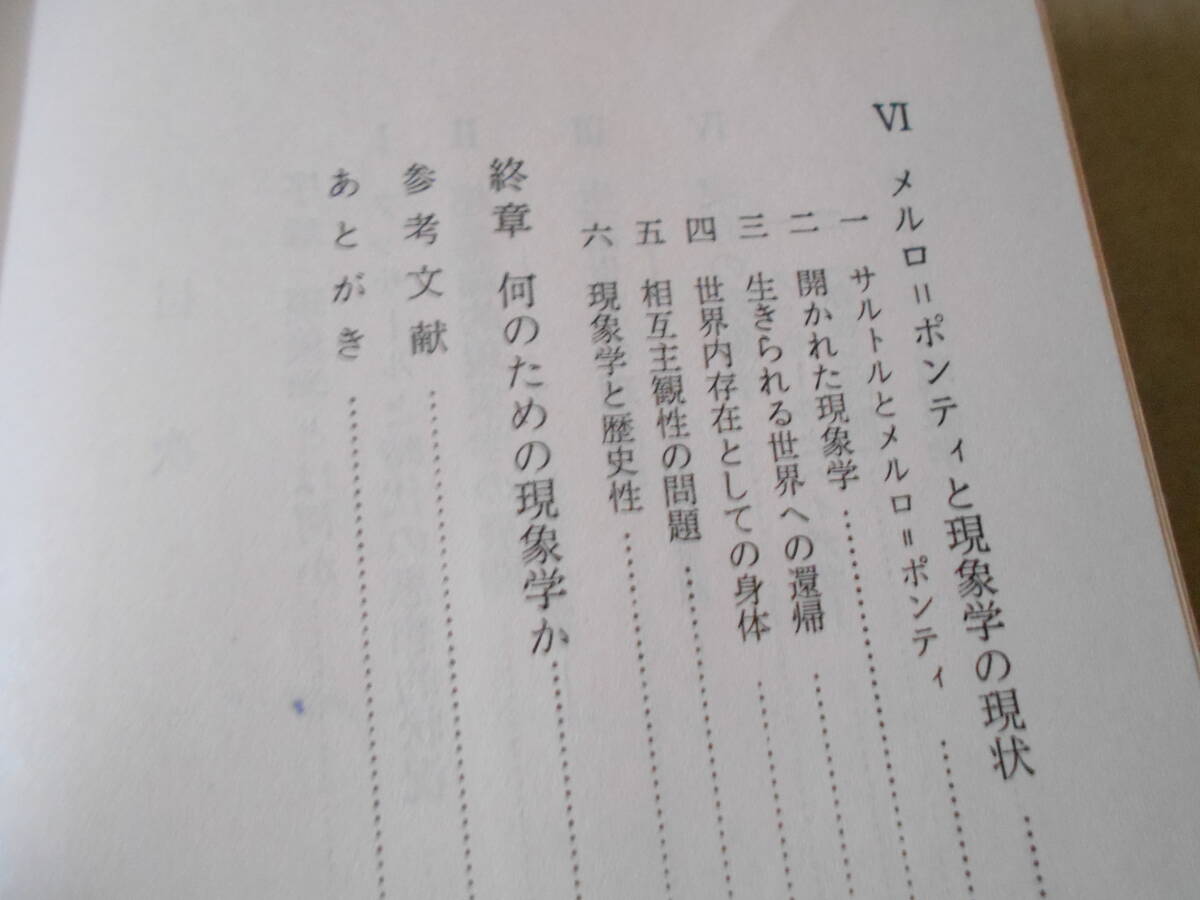 Ⅵ メルロ゠ポンティと現象学の現状…………
一 サルトルとメルロ゠ポンティ…………
二 開かれた現象学…………
三 生きられる世界への還帰…………
四 世界内存在としての身体…………
五 相互主観性の問題…………
六 現象学と歴史性…………
終章 何のための現象学か…………
参考文献…………
あとがき…………